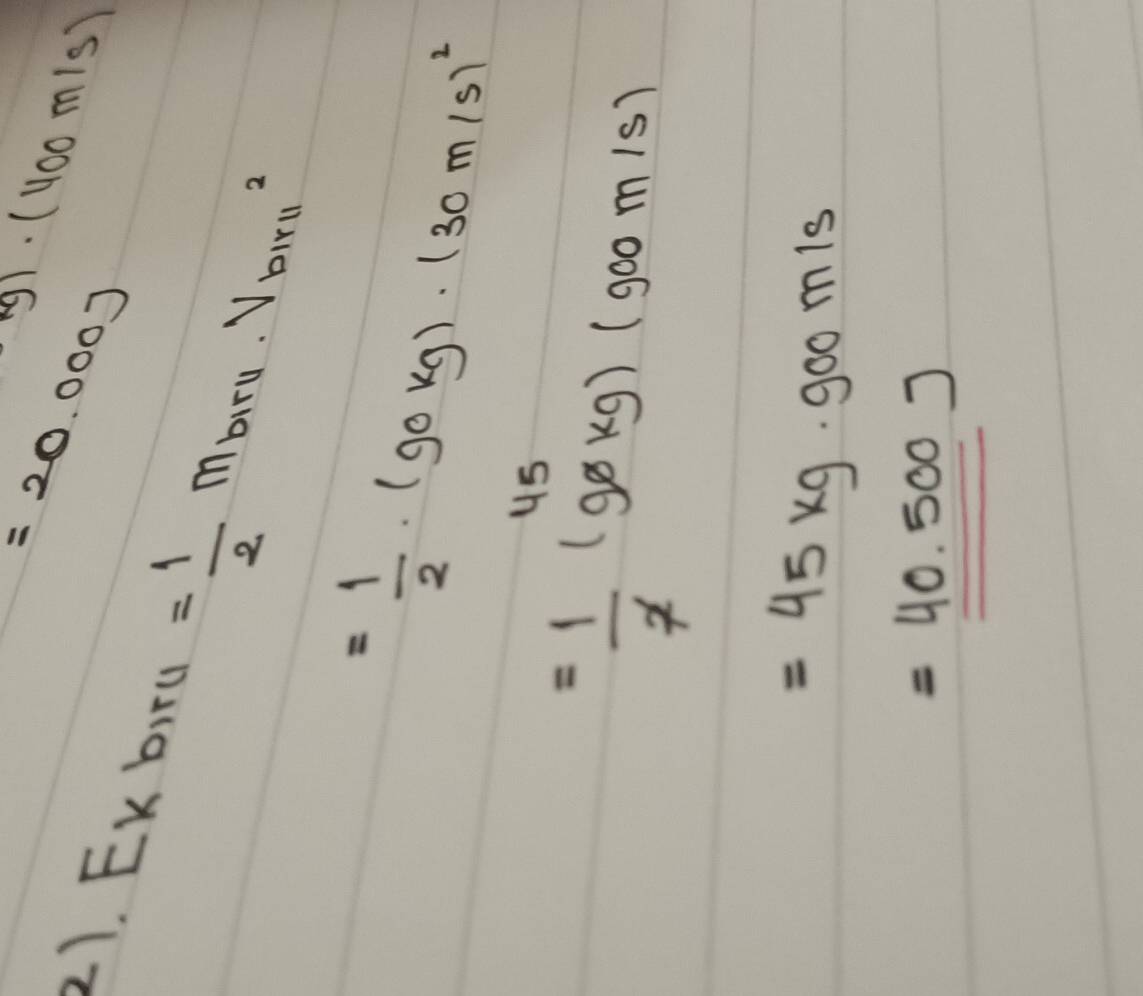 kg) . (400 m/s)
= 20.000 J
2). Ek biru = 1/2 m biru . V biru ²
= 1/2 . (90 kg) . (30 m/s)²
45
= 1/2 (90 kg) (900 m/s)
= 45 kg . 900 m/s
= 40.500 J